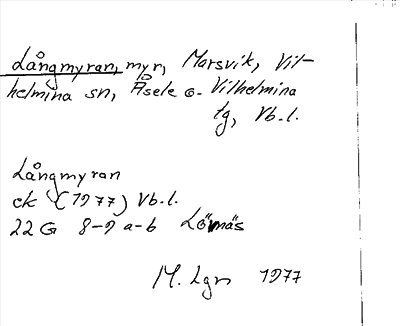 Långmyran, myr, Marsvik, Vil-
helmina sn, Åsele o. Vilhelmina
tg, Vb.l.
Långmyran
ek (1977) Vb.l.
22 G 8-9 a-b Lövnäs
M. Lgn 1977